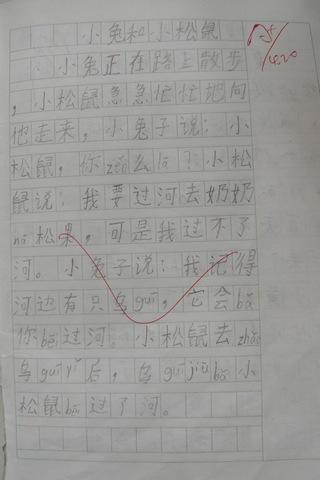 小兔和小松鼠
小兔正在路上散步
，小松鼠急急忙忙地向
他走来，小兔子说：小
松鼠，你zěn么问？小松
鼠说：我要过河去奶奶
nā松果，可是我过不了
河。小兔子说：我记得
河边有只乌guī，它会bā
你bāi过河。小松鼠去zhǎo
乌guī
后，乌guījiùbā小
松鼠bāi过了河。
4.20